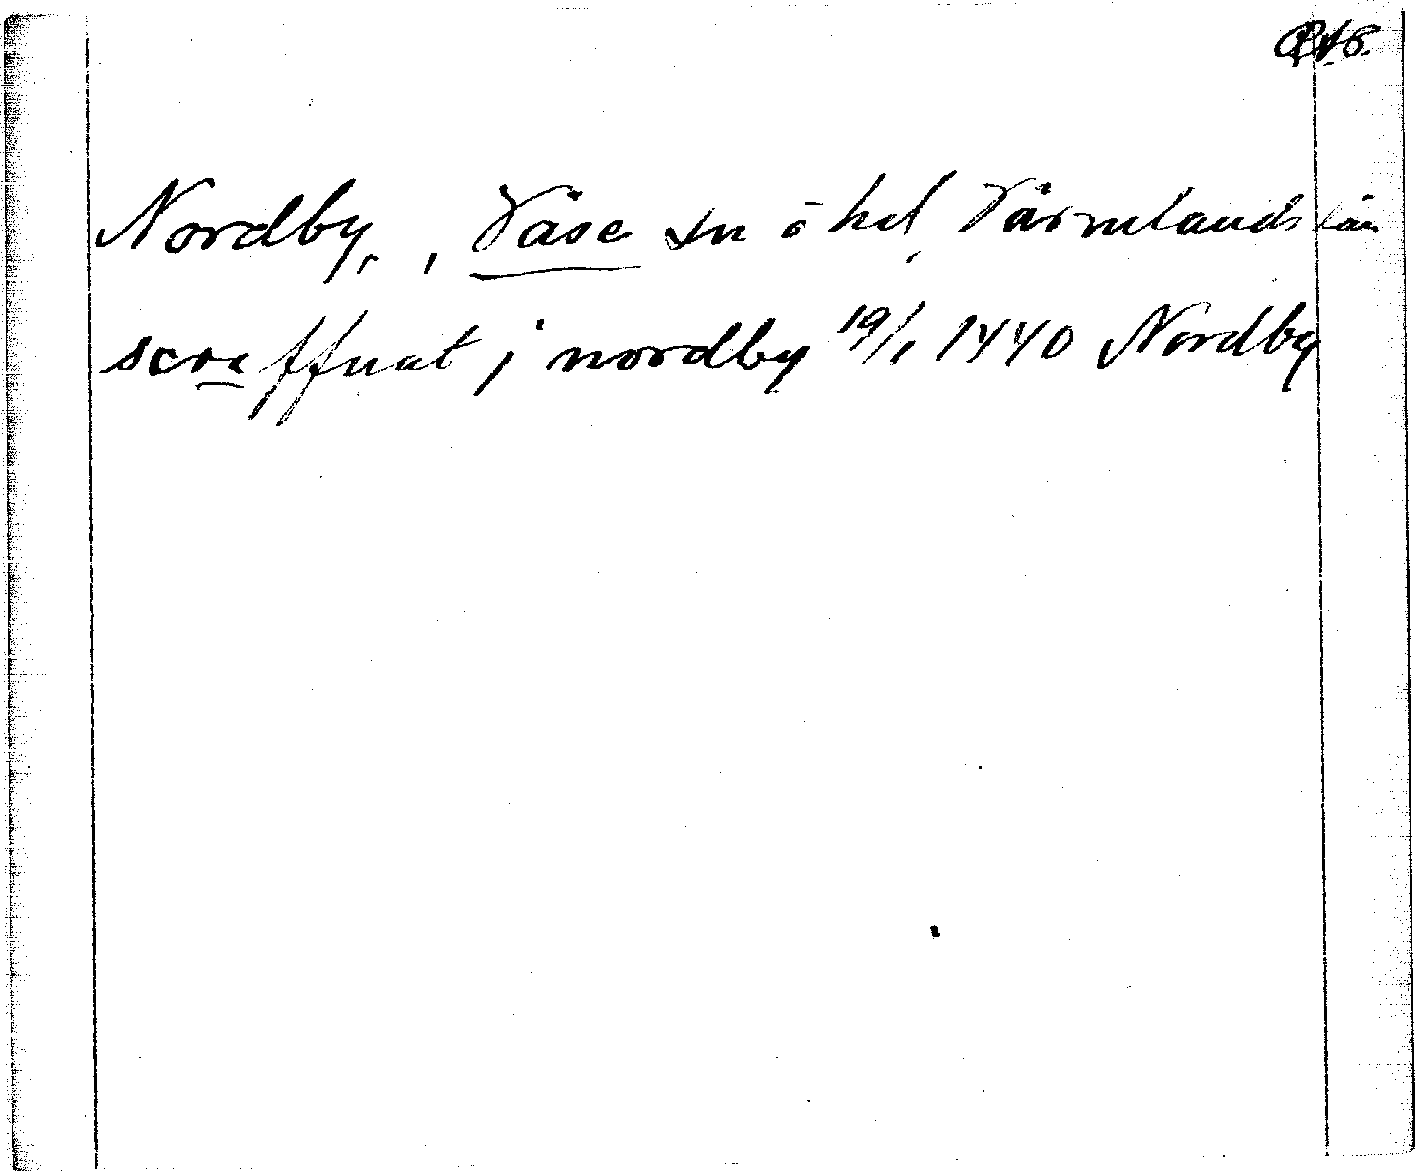 Nordby, , Väse sn ö hd, Värmlands län
scra ffuat j nordby 19/1 1440 Nordby